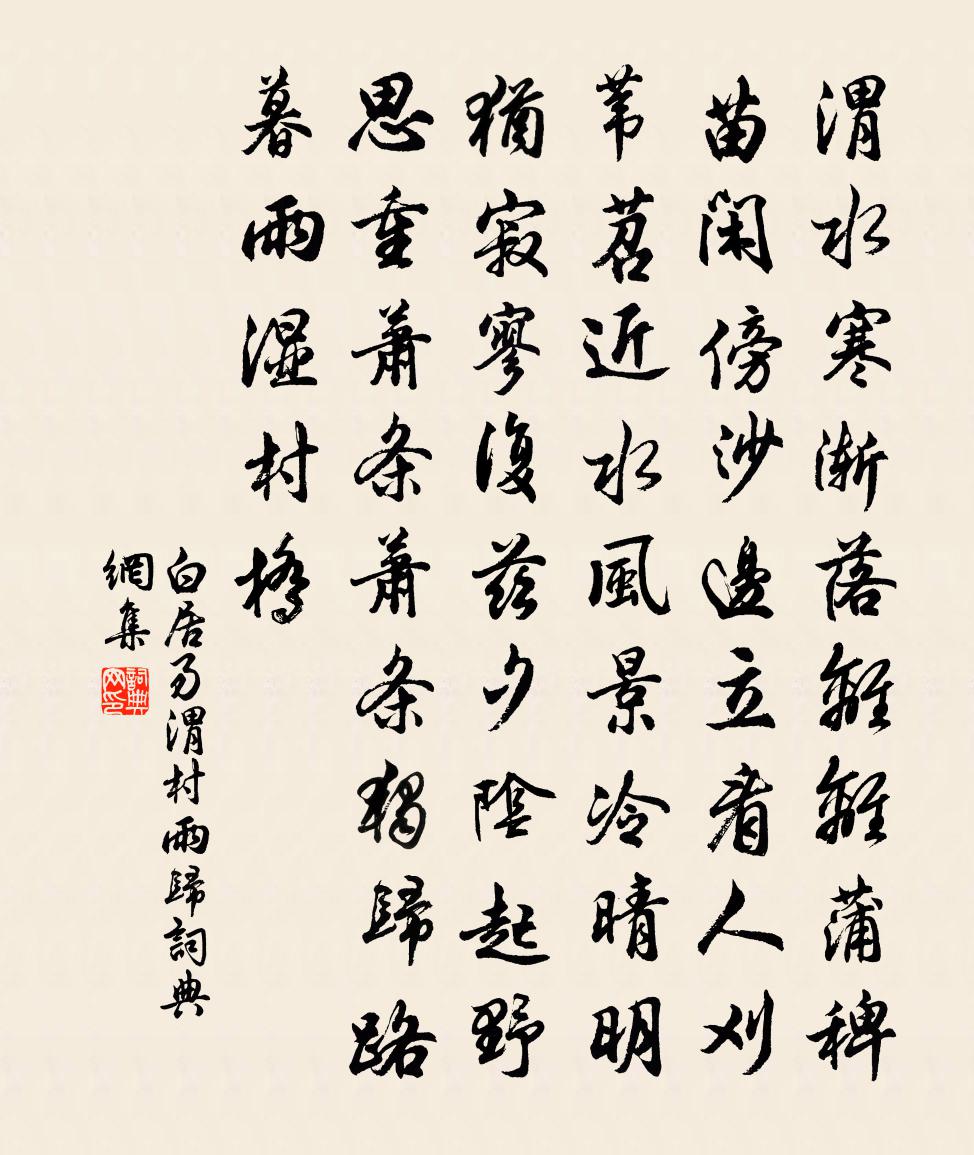 渭水寒漸落離離蒲稗
苗閑傍沙邊立看人刈
葦苕近水風景冷晴明
猶寂寥復茲夕陰起野
思重蕭条蕭条獨歸路
暮雨濕村橋
白居易渭村雨歸詞典
網集
詞典
网印